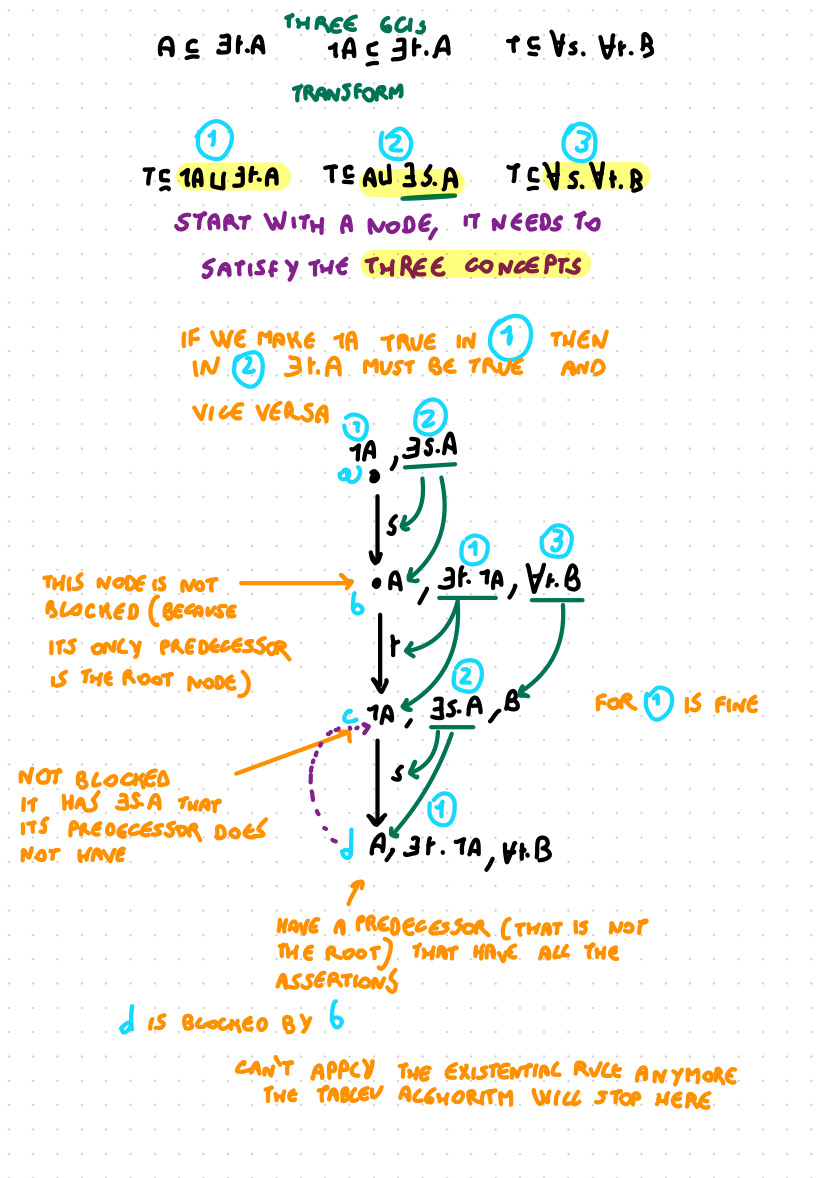 THREE GCIS
A ⊆ ∃r.A ¬A ⊆ ∃r.A ⊤ ⊆ ∀s. ∀r.B
TRANSFORM
1 2 3
⊤ ⊆ ¬A ⊔ ∃r.A ⊤ ⊆ A ⊔ ∃s.A ⊤ ⊆ ∀s.∀r.B
START WITH A NODE, IT NEEDS TO
SATISFY THE THREE CONCEPTS
IF WE MAKE ¬A TRUE IN 1 THEN
IN 2 ∃r.A MUST BE TRUE AND
VICE VERSA
1 2
¬A , ∃s.A
a
s
1 3
• A , ∃r.¬A , ∀r.B
b
THIS NODE IS NOT
BLOCKED (BECAUSE
ITS ONLY PREDECESSOR
IS THE ROOT NODE)
r
2
c ¬A , ∃s.A , B
FOR 1 IS FINE
NOT BLOCKED
IT HAS ∃S.A THAT
ITS PREDECESSOR DOES
NOT HAVE
s
1
d A, ∃r.¬A , ∀r.B
HAVE A PREDECESSOR (THAT IS NOT
THE ROOT) THAT HAVE ALL THE
ASSERTIONS
d IS BLOCKED BY b
CAN'T APPLY THE EXISTENTIAL RULE ANYMORE
THE TABLEU ALGHORITM WILL STOP HERE